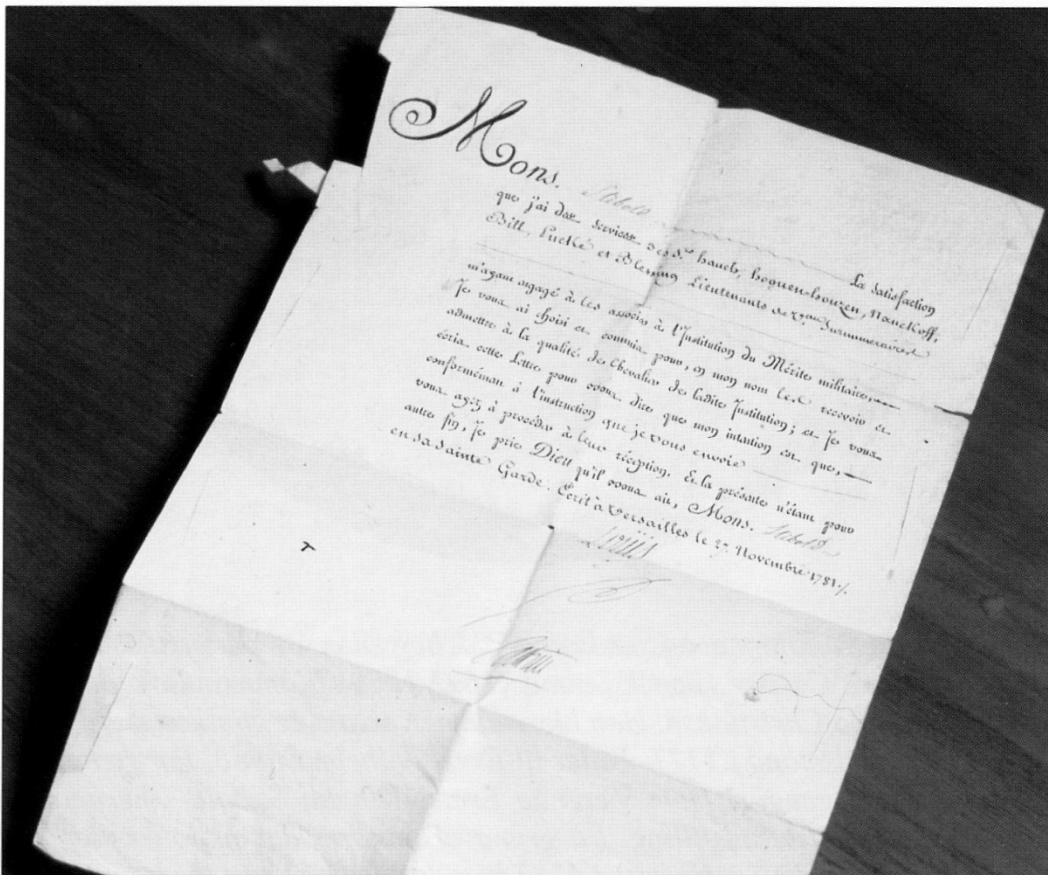 Mons. La Satisfaction
que j'ai des services des Srs. hauck, hoquen-houzen, Nanckoff,
Bill, Lucké et Blessing Lieutenants de
m'ayant engagé à les associer à l'Institution du Mérite militaire,
Je vous ai choisi et commis pour, en mon nom les recevoir et
admettre à la qualité de Chevalier de ladite Institution; et Je vous
écris cette Lettre pour vous dire que mon intention est que,
conformément à l'instruction que je vous envoie
vous ayez à procéder à leur réception. Et la présente n'étant pour
autre fin, Je prie Dieu qu'il vous ait, Mons.
en sa sainte Garde. Écrit à Versailles le 27 Novembre 1781./.
Louis